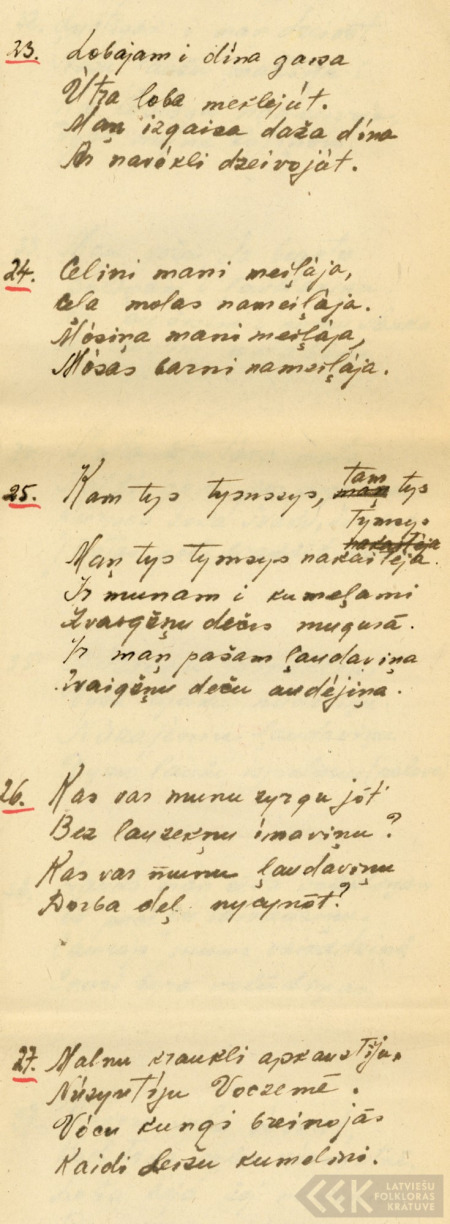 23. Lobajam i dína gaŗa
Útra loba meklejút.
Maņ izgaisa daža dína
Ar navókli dzeivojút.
24. Celini mani meiļája,
Ceļa molas nameiļája.
Mósiņa mani meiļája,
Mósas barni nameiļája.
25. Kam tys tymseys, tam tys tymsys
Maņ tys tymsys nakaitéja.
Ir munam i kumeļami
Zvaigžņu dečis mugurá.
Ir maņ pašam ļaudaviņa
Zvaigžņu deču audéjiņa.
26. Kas var munu zyrgu jót
Bez lauzekņu ímaviņu?
Kas var munu ļaudaviņu
Dorba deļ nycynót?
27. Malnu kraukli apkaustíju,
Núsyutíju Voczemē.
Vócu kungi breinojás
Kaidi leišu kumelini.
LATVIEŠU
FOLKLORAS
KRĀTUVE